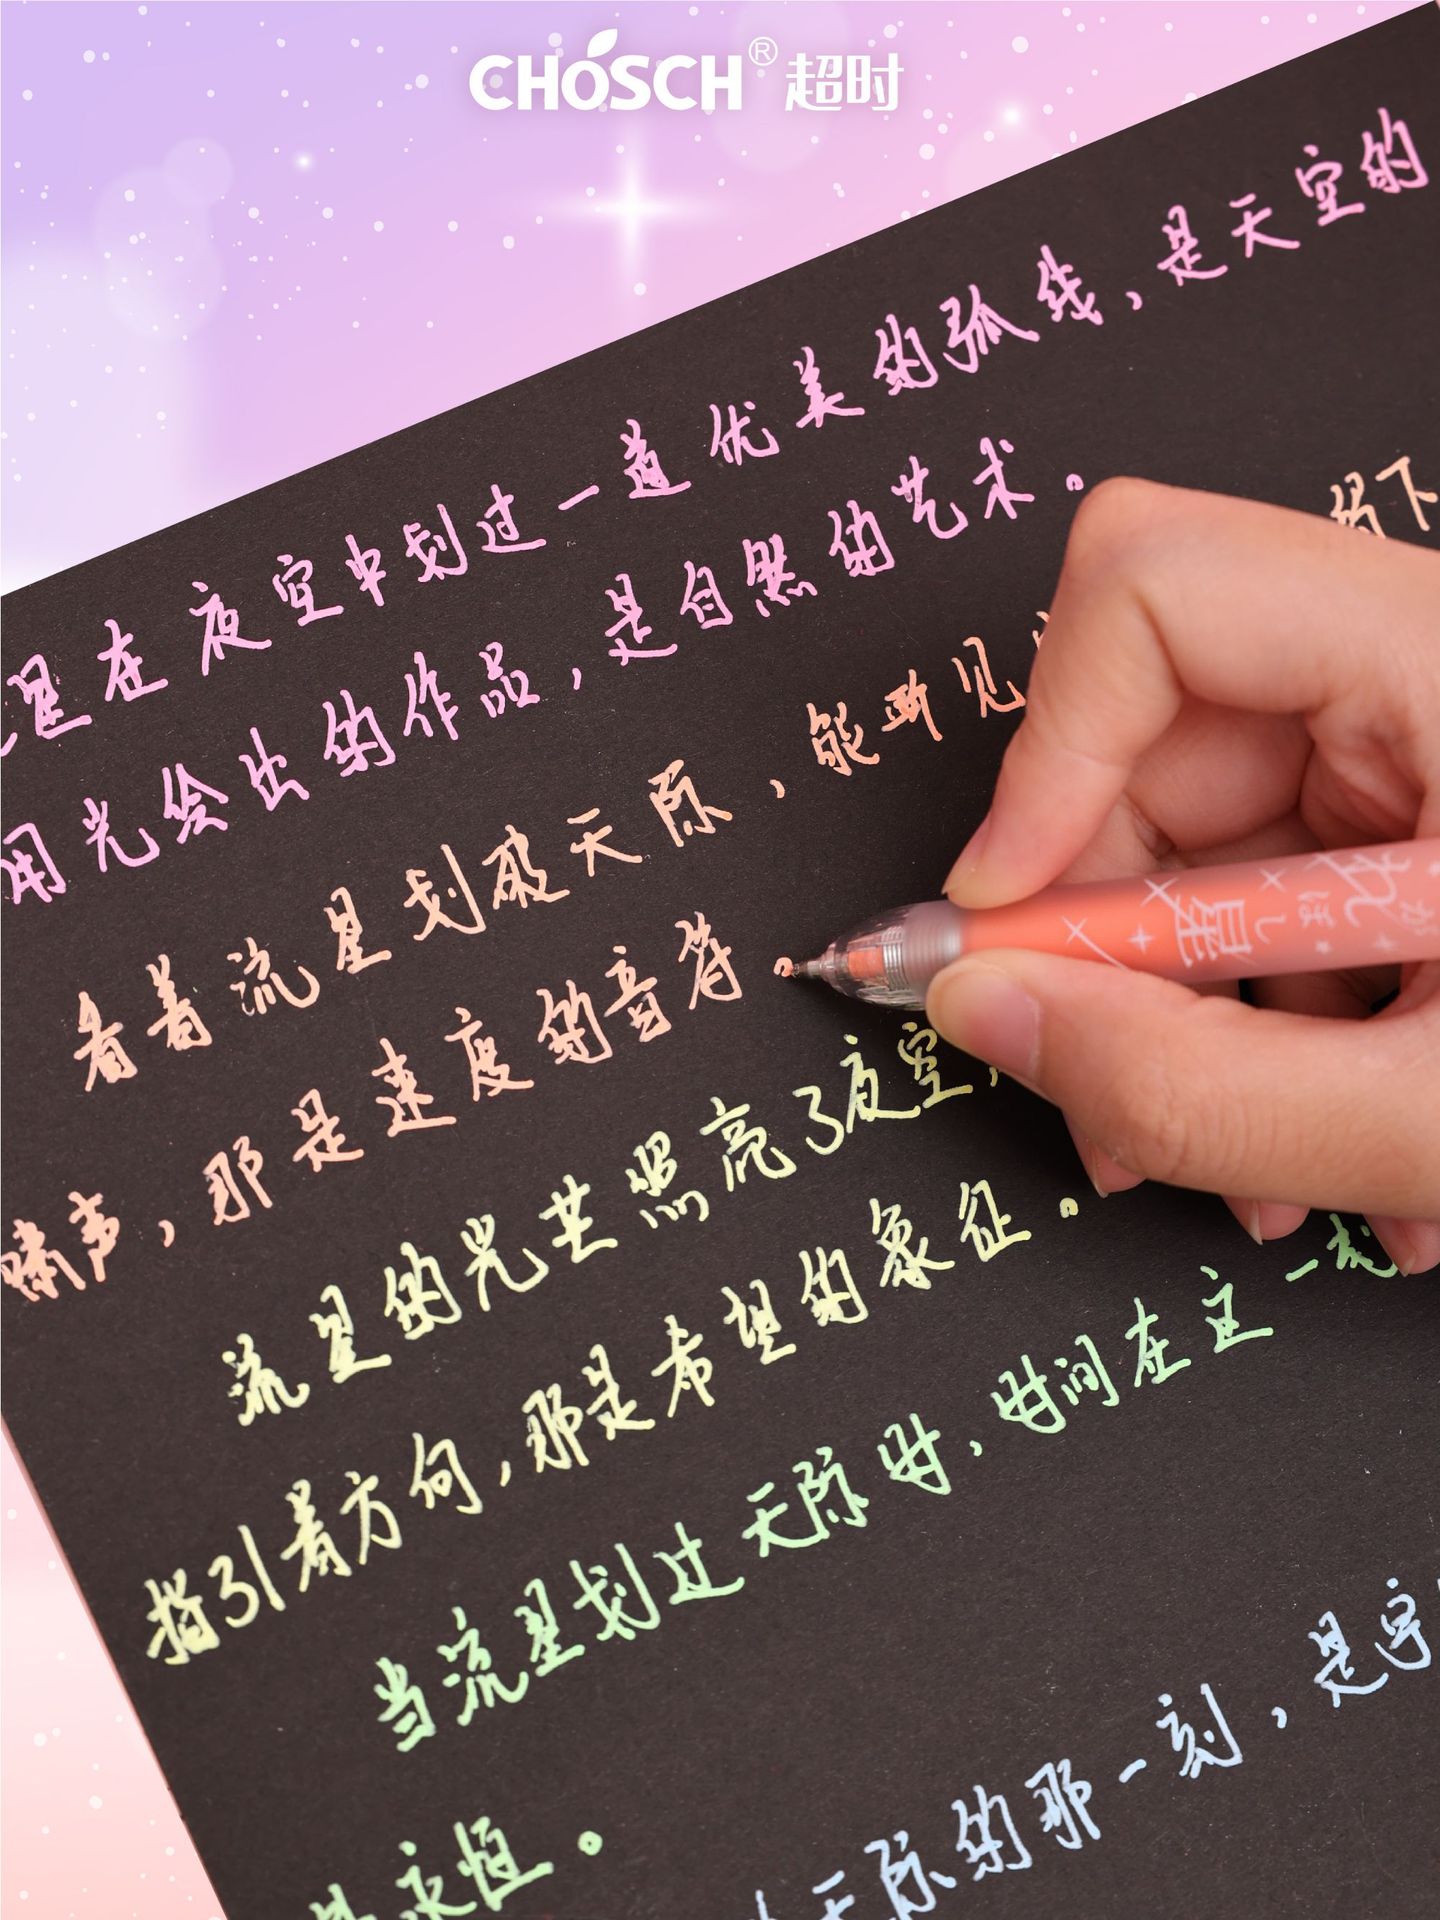 CHOSCH® 超时
星在夜空中划过一道优美的弧线，是天空的
用光绘出的作品，是自然的艺术。
的下
看着流星划破天际，能听见
啸声，那是速度的音符。
流星的光芒照亮了夜空，
指引着方向，那是希望的象征。
当流星划过天际时，时间在这一
永恒。
天际的那一刻，是宇
ながれ
ぼし
星